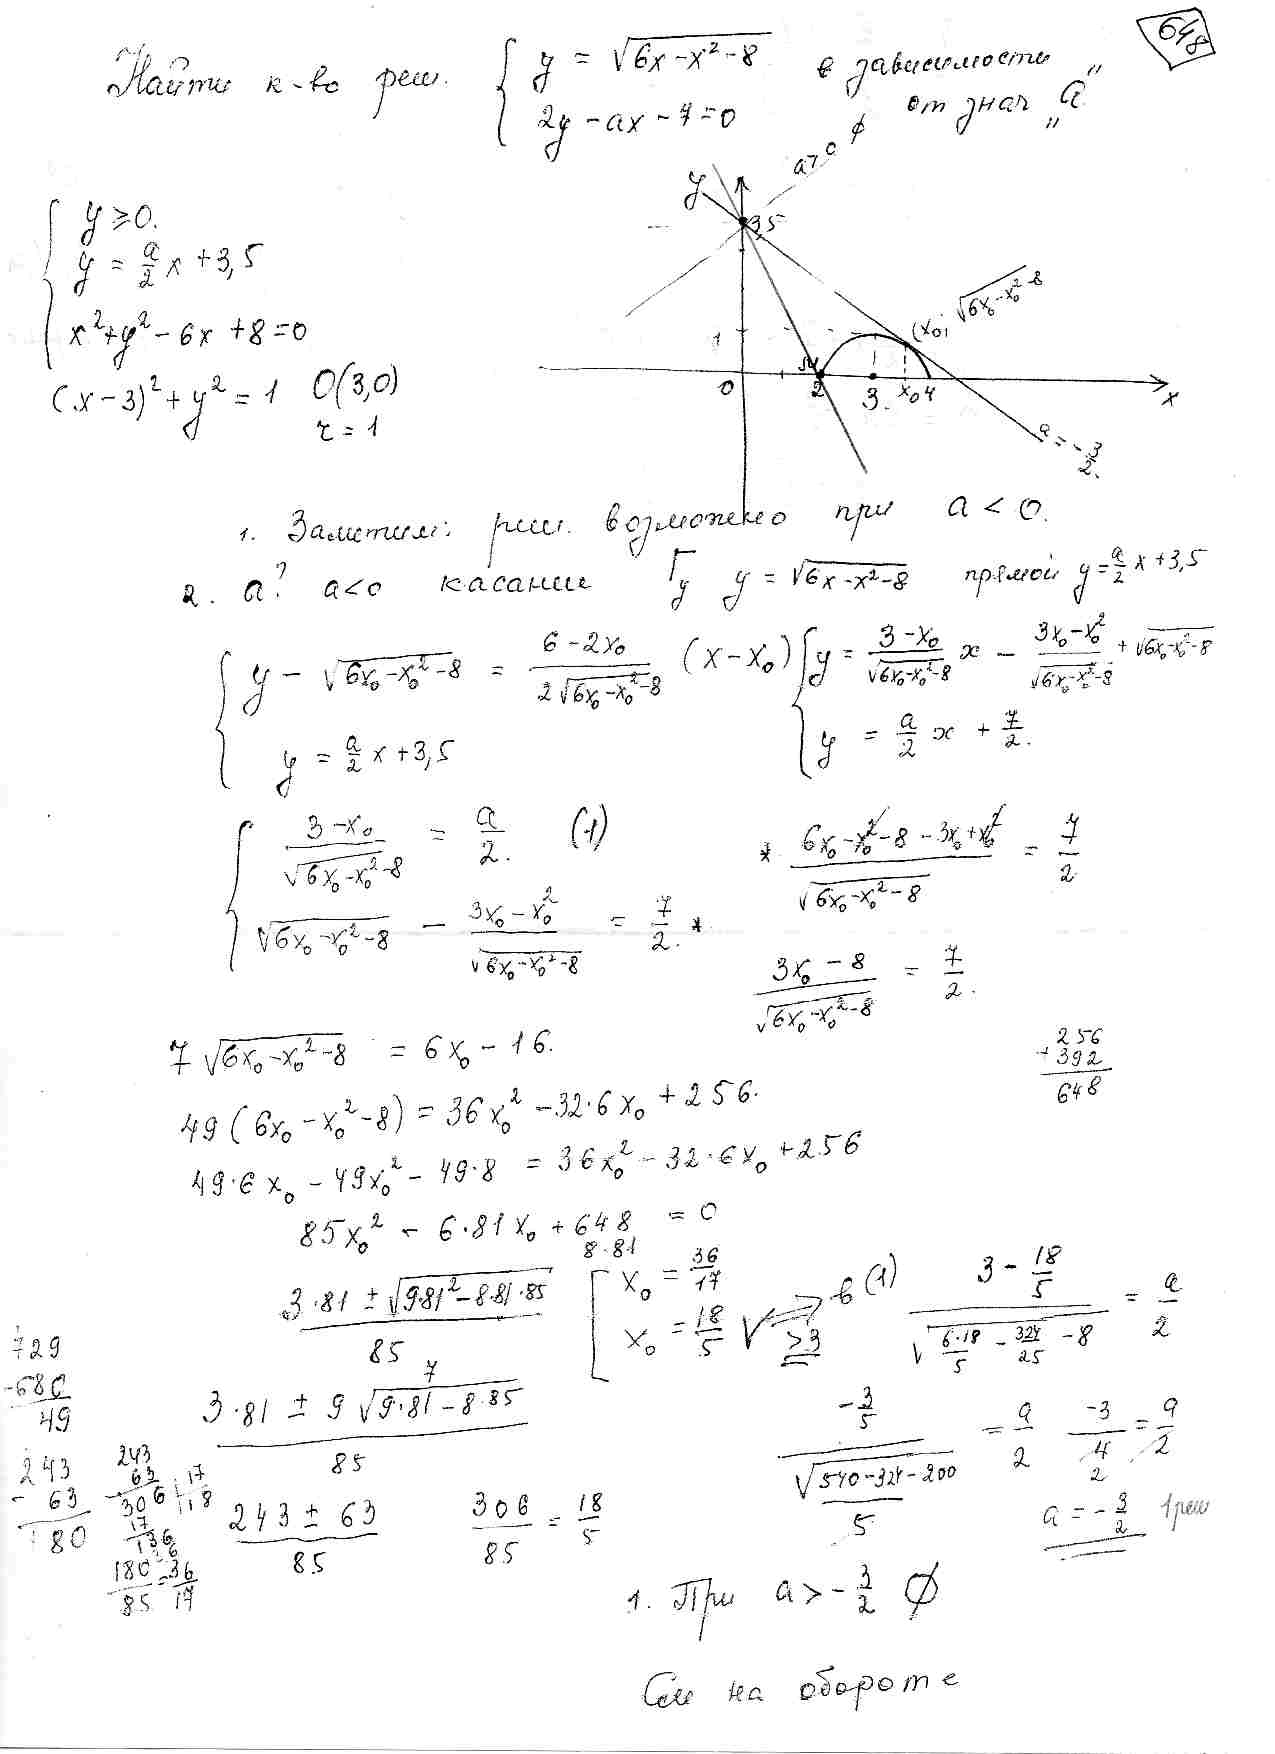 648
Найти к-во реш. { y = √(6x-x²-8) в зависимости
2y-ax-7=0 от знач „a"
a>0 ∅
y
3,5
{ y ≥ 0.
y = a/2 x + 3,5
x²+y²-6x+8=0
(x-3)²+y² = 1 O(3,0)
r = 1
(x₀; √(6x₀-x₀²-8)
1
M
0 2 3 x₀ 4 x
a = -3/2.
1. Заметим: реш. возможно при a < 0.
2. a? a<0 касание Гy y = √(6x-x²-8) прямой y = a/2 x + 3,5
{ y - √(6x₀-x₀²-8) = (6-2x₀)/(2√(6x₀-x₀²-8)) (x-x₀)
y = a/2 x + 3,5
{ y = (3-x₀)/√(6x₀-x₀²-8) x - (3x₀-x₀²)/√(6x₀-x₀²-8) + √(6x₀-x₀²-8)
y = a/2 x + 7/2.
{ (3-x₀)/√(6x₀-x₀²-8) = a/2. (1)
√(6x₀-x₀²-8) - (3x₀-x₀²)/√(6x₀-x₀²-8) = 7/2. *
* (6x₀-x₀²-8-3x₀+x₀²)/√(6x₀-x₀²-8) = 7/2
(3x₀-8)/√(6x₀-x₀²-8) = 7/2.
7√(6x₀-x₀²-8) = 6x₀-16.
256
+392
648
49(6x₀-x₀²-8) = 36x₀²-32·6x₀+256.
49·6x₀-49x₀²-49·8 = 36x₀²-32·6x₀+256
85x₀² - 6·81x₀ + 648 = 0
8·81
(3·81 ± √(9·81²-8·81·85))/85
[ x₀ = 36/17
x₀ = 18/5 √ >3 ⇒ в (1)
(3-18/5)/√(6·18/5 - 324/25 - 8) = a/2
729
-680
49
(3·81 ± 9√(9·81-8·85))/85
7
(-3/5)/(√(540-324-200)/5) = a/2 -3/4 = a/2
2
243
- 63
180
243
63
306
17
18
17
136
180/85 = 36/17
(243 ± 63)/85 306/85 = 18/5
a = -3/2 1 реш
1. При a > -3/2 ∅
См на обороте